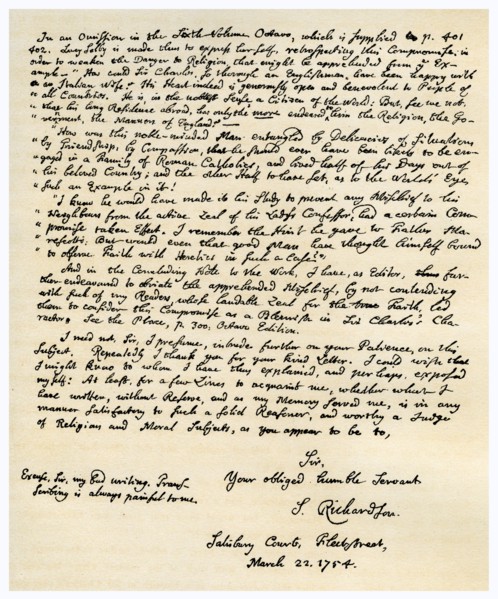 In an Omission in the Sixth Volume Octavo, which is supplied in p. 401
402. Lucy Selby is made thus to express herself, retrospecting this Compromise; in
order to weaken the Danger to Religion, that might be apprehended from ye Ex-
ample— "How could Sir Charles, so thorough an Englishman, have been happy with
"an Italian Wife? His Heart indeed is generously open and benevolent to People of
"all Countries. He is in the noblest Sense a Citizen of the World: But, see we not,
"that his long Residence abroad, has only the more endeared him the Religion, the Go-
"vernment, the Manners of England?—
"How was this noble-minded Man entangled by Delicacies of Situation
"by Friendship, by Compassion, that he should ever have been likely to be en-
"gaged in a Family of Roman Catholics, and lived half of his Days out of
"his beloved Country; and the other Half to have set, as to the World's Eye,
"such an Example in it!
"I know he would have made it his Study to prevent any Mischief to his
"Neighbours from the active Zeal of his Lady's Confessor, had a certain Com-
"promise taken Effect. I remember the Hint he gave to Father Ma-
"rescotti: But would even that good Man have thought himself bound
"to observe Faith with Heretics in such a Case?"
And in the Concluding Note to the Work, I have, as Editor, fur-
ther endeavoured to obviate the apprehended Mischief, by not contending
with such of my Readers, whose laudable Zeal for the true Faith, led
them to consider this Compromise as a Blemish in Sir Charles's Cha-
racter. See the Place, p. 300. Octavo Edition.
I need not, Sir, I presume, intrude further on your Patience, on this
Subject. Repeatedly I thank you for your kind Letter. I could wish that
I might know to whom I have thus explained, and perhaps exposed
myself: At least, for a few Lines to acquaint me, whether what I
have written, without Reserve, and as my Memory served me, is in any
manner Satisfactory to such a solid Reasoner, and worthy a Judge
of Religious and Moral Subjects, as you appear to be to,
Sir,
Your obliged humble Servant
S. Richardson.
Excuse, Sir, my bad writing. Tran-
scribing is always painful to me.
Salisbury Court, Fleetstreet,
March 22. 1754.